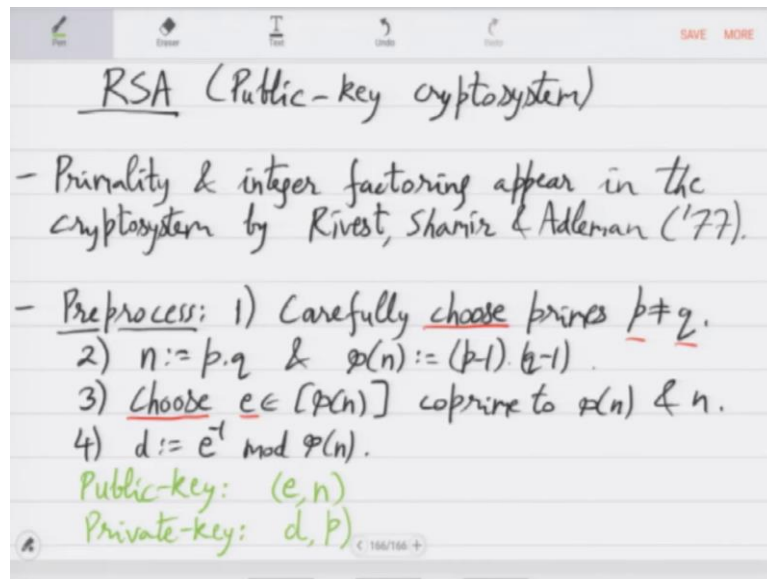 Pen Eraser Text Undo Redo SAVE MORE
RSA (Public-key cryptosystem)
- Primality & integer factoring appear in the
cryptosystem by Rivest, Shamir & Adleman ('77).
- Preprocess: 1) Carefully choose primes p≠q.
2) n := p.q & φ(n) := (p-1).(q-1).
3) Choose e∈ [φ(n)] coprime to φ(n) & n.
4) d := e⁻¹ mod φ(n).
Public-key: (e,n)
Private-key: d, p)
< 166/166 +